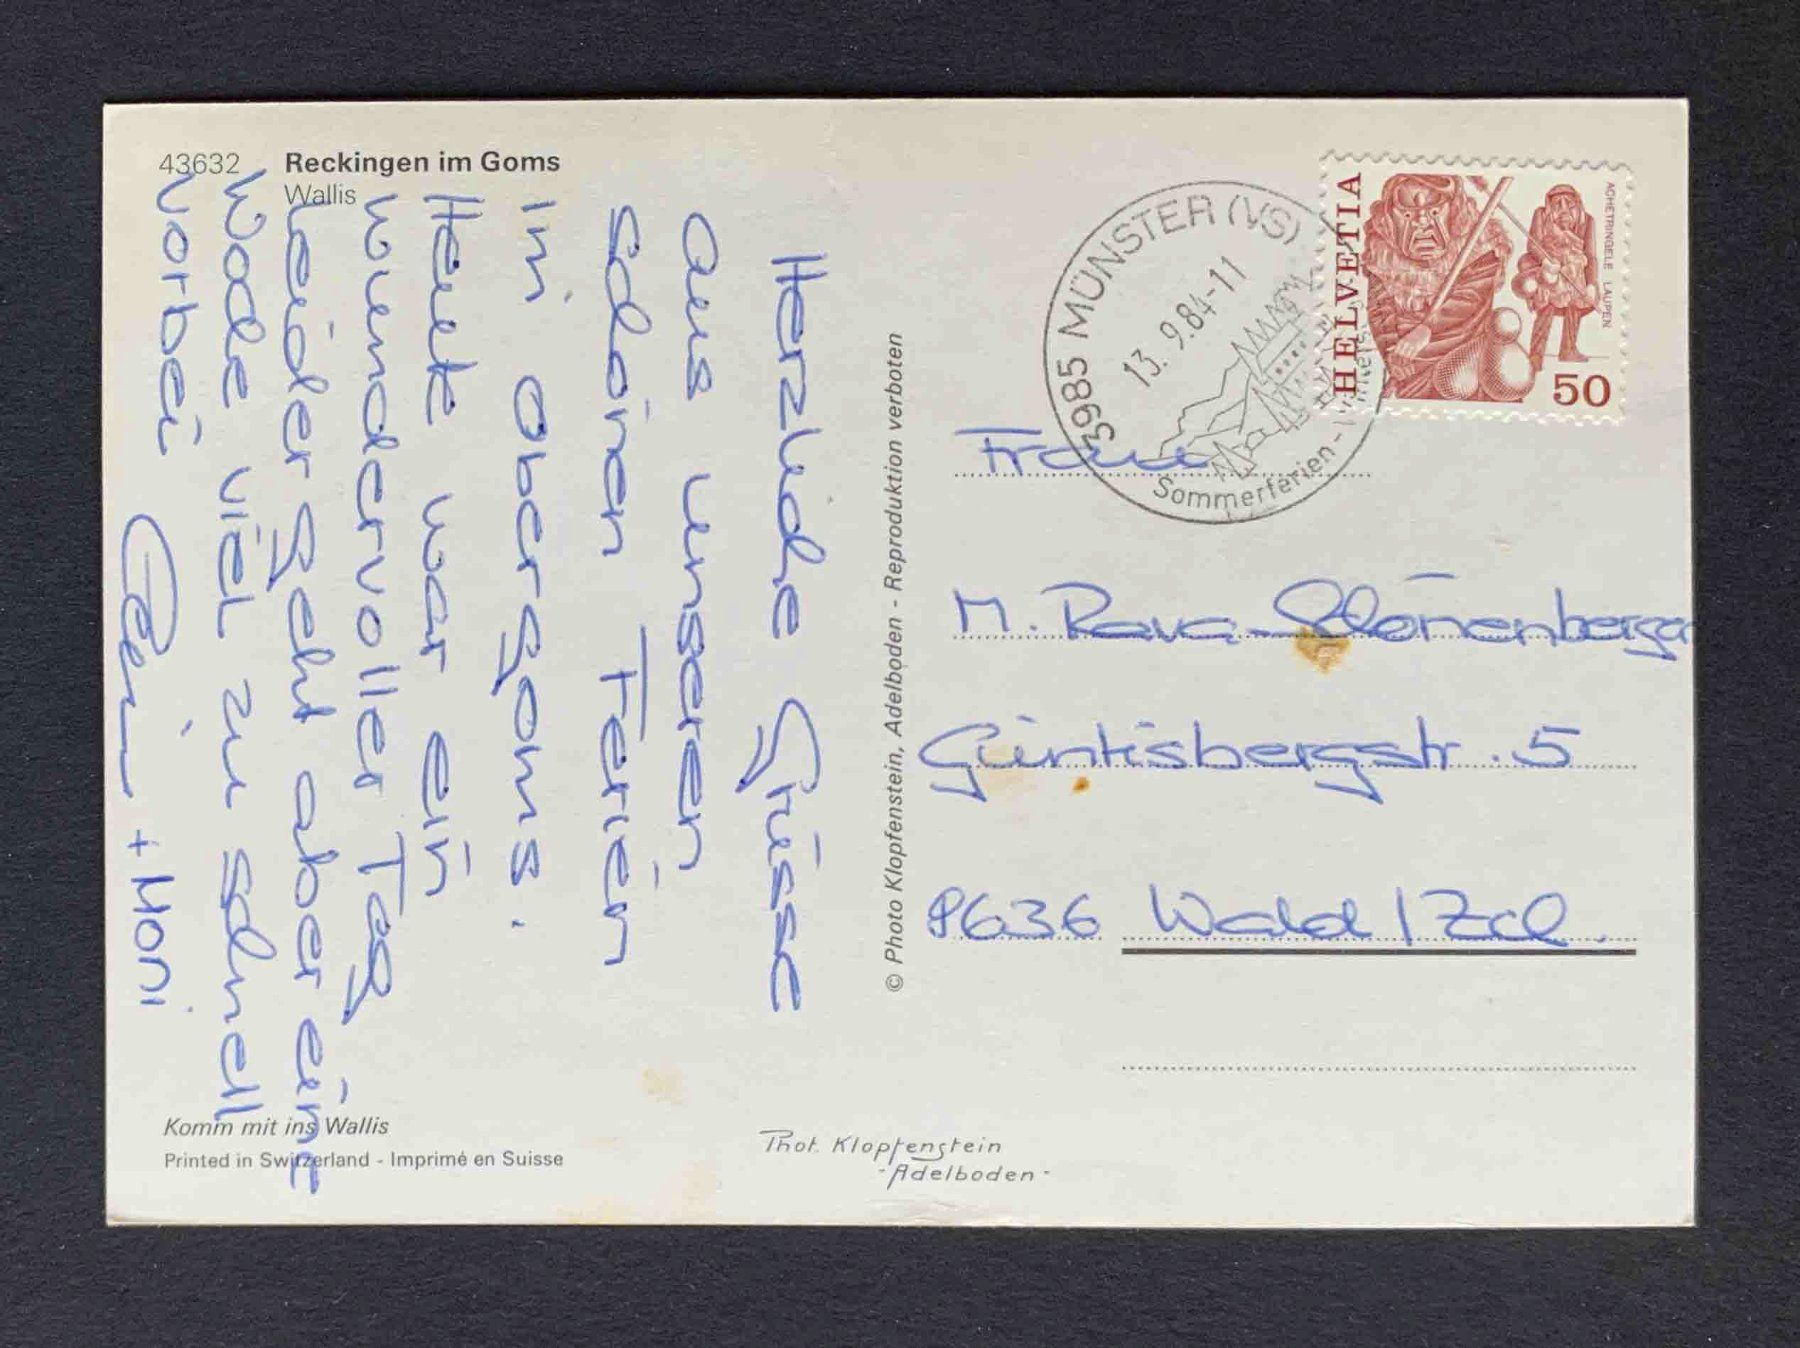 43632 Reckingen im Goms
Wallis
Herzliche Grüsse
aus unseren
schönen Ferien
im Obergoms.
Heute war ein
wundervoller Tag
Leider geht aber eine
Woche viel zu schnell
vorbei
+ Moni
Komm mit ins Wallis
Printed in Switzerland - Imprimé en Suisse
© Photo Klopfenstein, Adelboden - Reproduktion verboten
Phot. Klopfenstein
- Adelboden -
3985 MÜNSTER (VS)
13.9.84-11
Sommerferien-
HELVETIA
ACHETRINGELE LAUPEN
50
Frau
M. Rava-Schönenberger
Güntisbergstr. 5
8636 Wald / ZH.